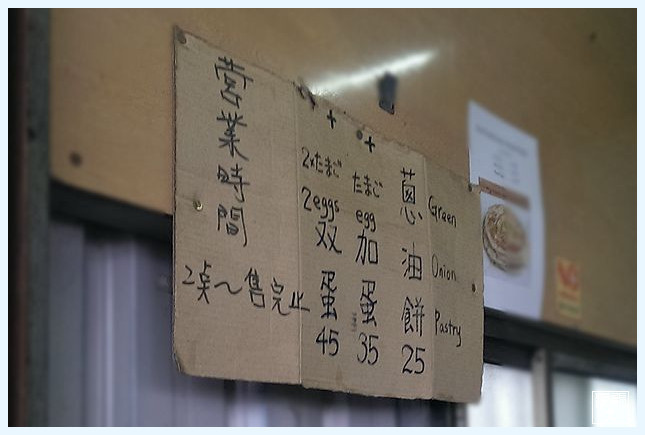 Green Onion Pastry
蔥油餅 25
+ たまご egg 加蛋 35
+ 2xたまご 2eggs 双蛋 45
營業時間
2点～售完止